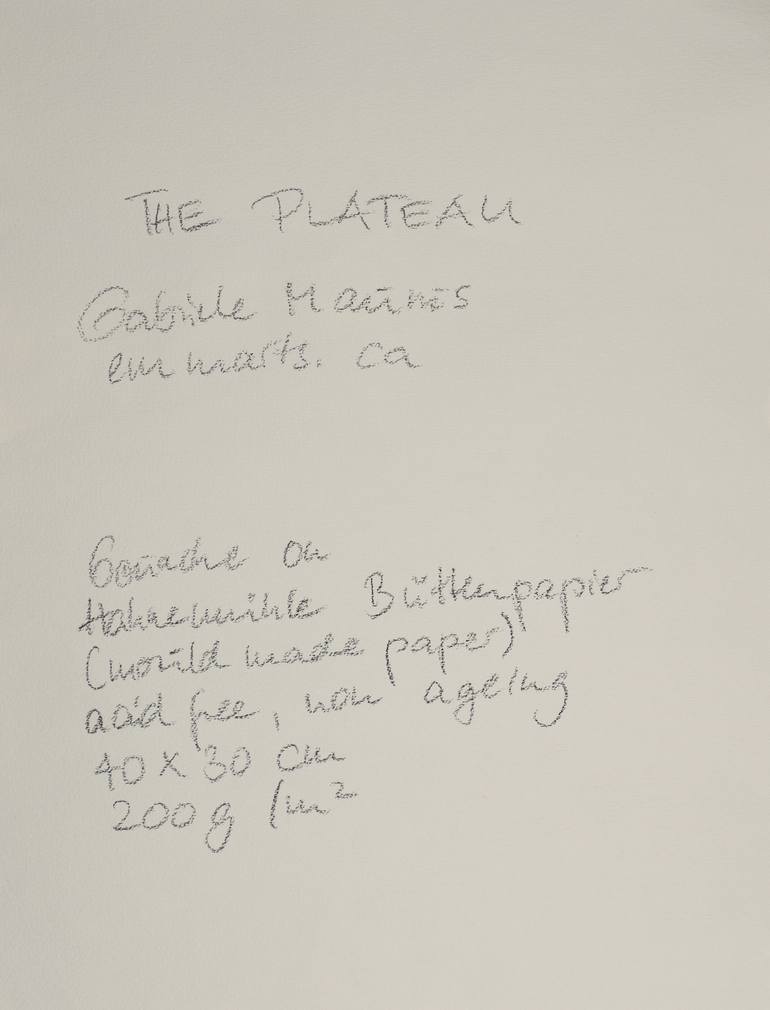 THE PLATEAU
Gabriele Maurus
emmarts. ca
Gouache on
Hahnemühle Büttenpapier
(mould made paper)
acid free, non ageing
40 x 30 cm
200 g /m²